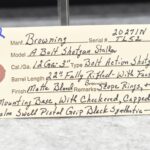 Manf. Browning 2027IN
Model A Bolt Shotgun Stalker
Cal. 12 Ga. 3" Type Bolt Action Shotgun
Barrel Length 22" Fully Rifled With
Finish Matte Black Remarks Scope Rings,
Mounting Base, With Checkered, Capped
Palm Swell Pistol Grip Black Synthetic